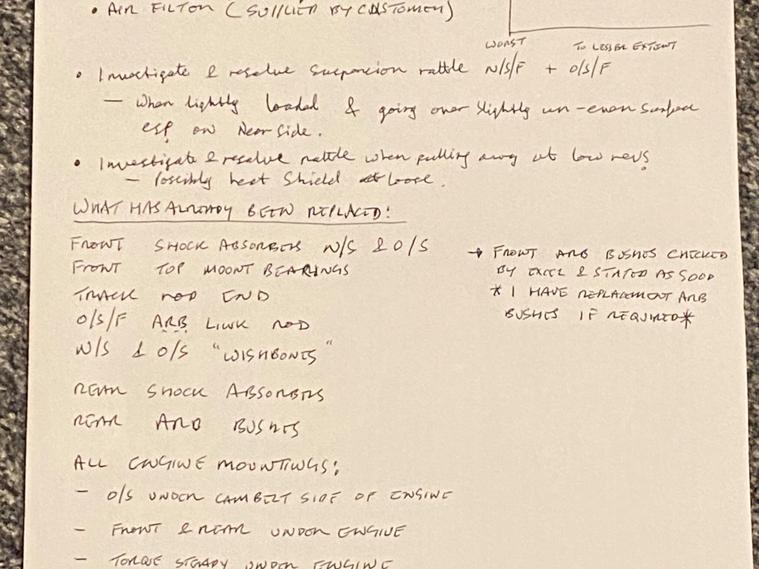 • AIR FILTOR (SUPPLIED BY CUSTOMER)
WORST TO LESSER EXTENT
• Investigate & resolve suspension rattle N/S/F + O/S/F
— When lightly loaded & going over slightly un-even surface
esp on Near Side.
• Investigate & resolve rattle when pulling away at low revs
— Possibly heat shield loose.
WHAT HAS ALREADY BEEN REPLACED:
FRONT SHOCK ABSORBERS N/S & O/S
FRONT TOP MOUNT BEARINGS
TRACK ROD END
O/S/F ARB LINK ROD
N/S & O/S "WISHBONES"
REAR SHOCK ABSORBERS
REAR ARB BUSHES
→ FRONT ARB BUSHES CHECKED
BY EXCEL & STATED AS GOOD
* I HAVE REPLACEMENT ARB
BUSHES IF REQUIRED*
ALL ENGINE MOUNTINGS:
– O/S UNDER CAMBELT SIDE OF ENGINE
– FRONT & REAR UNDER ENGINE
– TORQUE STEADY UNDER ENGINE